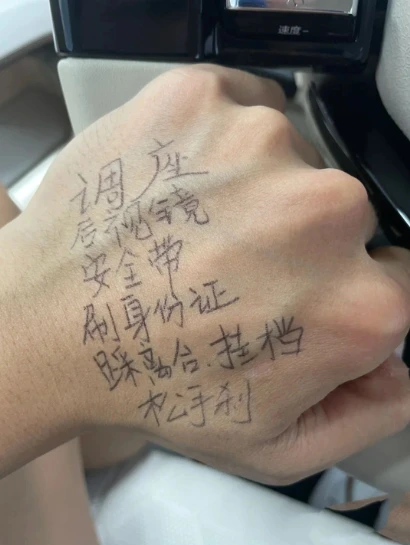 速度-
调座
后视镜
安全带
刷身份证
踩离合.挂档
松手刹